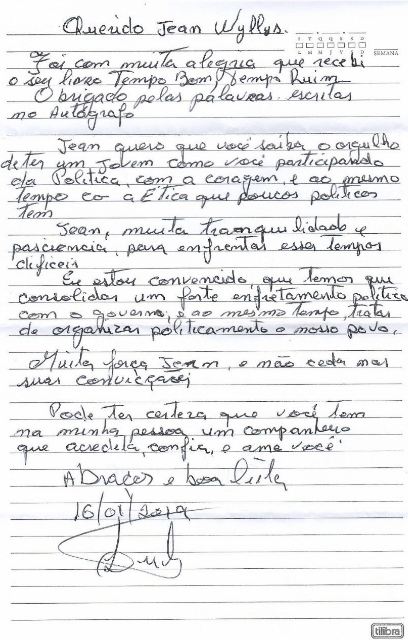 Querido Jean Wyllys.
S T Q Q S S D
SEMANA
Foi com muita alegria que recebi
o seu livro Tempo Bom, Tempo Ruim
Obrigado pelas palavras escritas
no Autógrafo
Jean quero que você saiba o orgulho
de ter um Jovem como você participando
da Política, com a coragem, e ao mesmo
tempo co a Ética que poucos politicos
tem
Jean, muita tranquilidade e
pasciencia, para enfrentar esses tempos
dificeis
Eu estou convencido, que temos que
consolidar um forte enfretamento político
com o governo, e ao mesmo tempo, tratar
de organizar politicamente o nosso povo.
Muita força Jean, e não ceda nas
suas convicções
Pode ter certeza que você tem
na minha pessoa um companheiro
que acredita, confia, e ama você
Abraços e boa luta
16/01/2019
tilibra